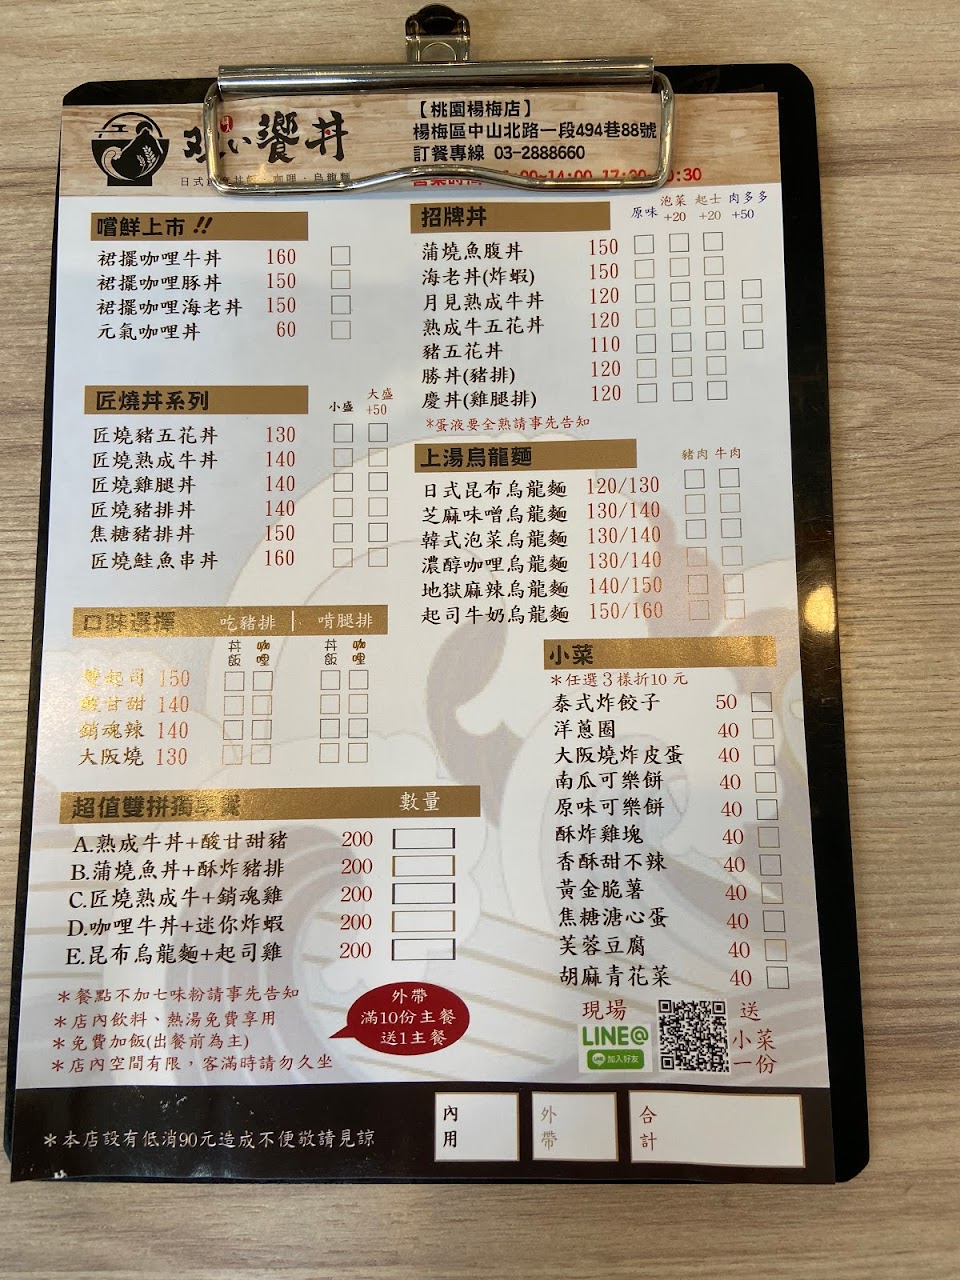 饗丼
【桃園楊梅店】
楊梅區中山北路一段494巷88號
訂餐專線 03-2888660
嚐鮮上市!!
裙擺咖哩牛丼 160
裙擺咖哩豚丼 150
裙擺咖哩海老丼 150
元氣咖哩丼 60
招牌丼 原味 泡菜+20 起士+20 肉多多+50
蒲燒魚腹丼 150
海老丼(炸蝦) 150
月見熟成牛丼 120
熟成牛五花丼 120
豬五花丼 110
勝丼(豬排) 120
慶丼(雞腿排) 120
*蛋液要全熟請事先告知
匠燒丼系列 小盛 大盛+50
匠燒豬五花丼 130
匠燒熟成牛丼 140
匠燒雞腿丼 140
匠燒豬排丼 140
焦糖豬排丼 150
匠燒鮭魚串丼 160
上湯烏龍麵 豬肉 牛肉
日式昆布烏龍麵 120/130
芝麻味噌烏龍麵 130/140
韓式泡菜烏龍麵 130/140
濃醇咖哩烏龍麵 130/140
地獄麻辣烏龍麵 140/150
起司牛奶烏龍麵 150/160
口味選擇 吃豬排 | 啃腿排
丼飯 咖哩 丼飯 咖哩
雙起司 150
酸甘甜 140
銷魂辣 140
大阪燒 130
小菜
*任選3樣折10元
泰式炸餃子 50
洋蔥圈 40
大阪燒炸皮蛋 40
南瓜可樂餅 40
原味可樂餅 40
酥炸雞塊 40
香酥甜不辣 40
黃金脆薯 40
焦糖溏心蛋 40
芙蓉豆腐 40
胡麻青花菜 40
超值雙拼獨享餐 數量
A.熟成牛丼+酸甘甜豬 200
B.蒲燒魚丼+酥炸豬排 200
C.匠燒熟成牛+銷魂雞 200
D.咖哩牛丼+迷你炸蝦 200
E.昆布烏龍麵+起司雞 200
*餐點不加七味粉請事先告知
*店內飲料、熱湯免費享用
*免費加飯(出餐前為主)
*店內空間有限，客滿時請勿久坐
外帶
滿10份主餐
送1主餐
現場
LINE@
LINE 加入好友
送
小菜
一份
*本店設有低消90元造成不便敬請見諒
內用
外帶
合計